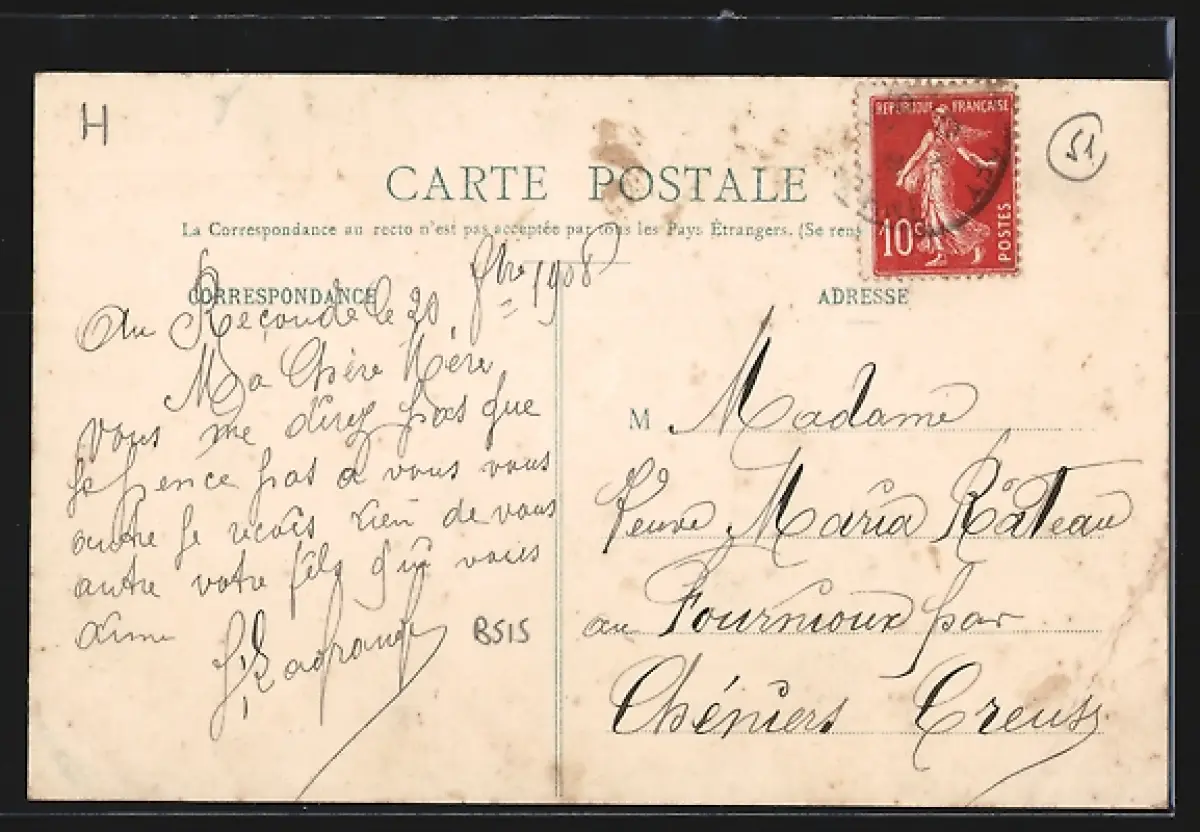 H
REPUBLIQUE FRANÇAISE
10c
POSTES
51
CARTE POSTALE
La Correspondance au recto n'est pas acceptée par tous les Pays Étrangers. (Se rens
CORRESPONDANCE
ADRESSE
Au le 20 1908
Ma Chère Mère
Vous me direz pas que
je pence pas a vous vous
autre je recois rien de vous
autre votre fils qui vous
aime
Lagrange
B515
M Madame
Veuve Maria Râteau
au Fournioux par
Chéniers Creuse